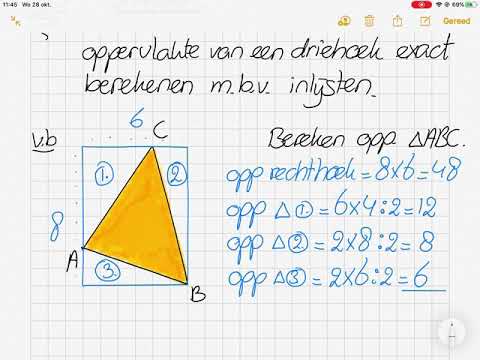 11:45 Wo 28 okt. 69%
Gereed
oppervlakte van een driehoek exact
berekenen m.b.v. inlijsten.
v.b
6
C
Bereken opp. △ABC.
1. 2.
opp rechthoek = 8x6 = 48
opp △ 1. = 6x4:2 = 12
8
opp △ 2 = 2x8:2 = 8
A
3.
opp △ 3 = 2x6:2 = 6
B